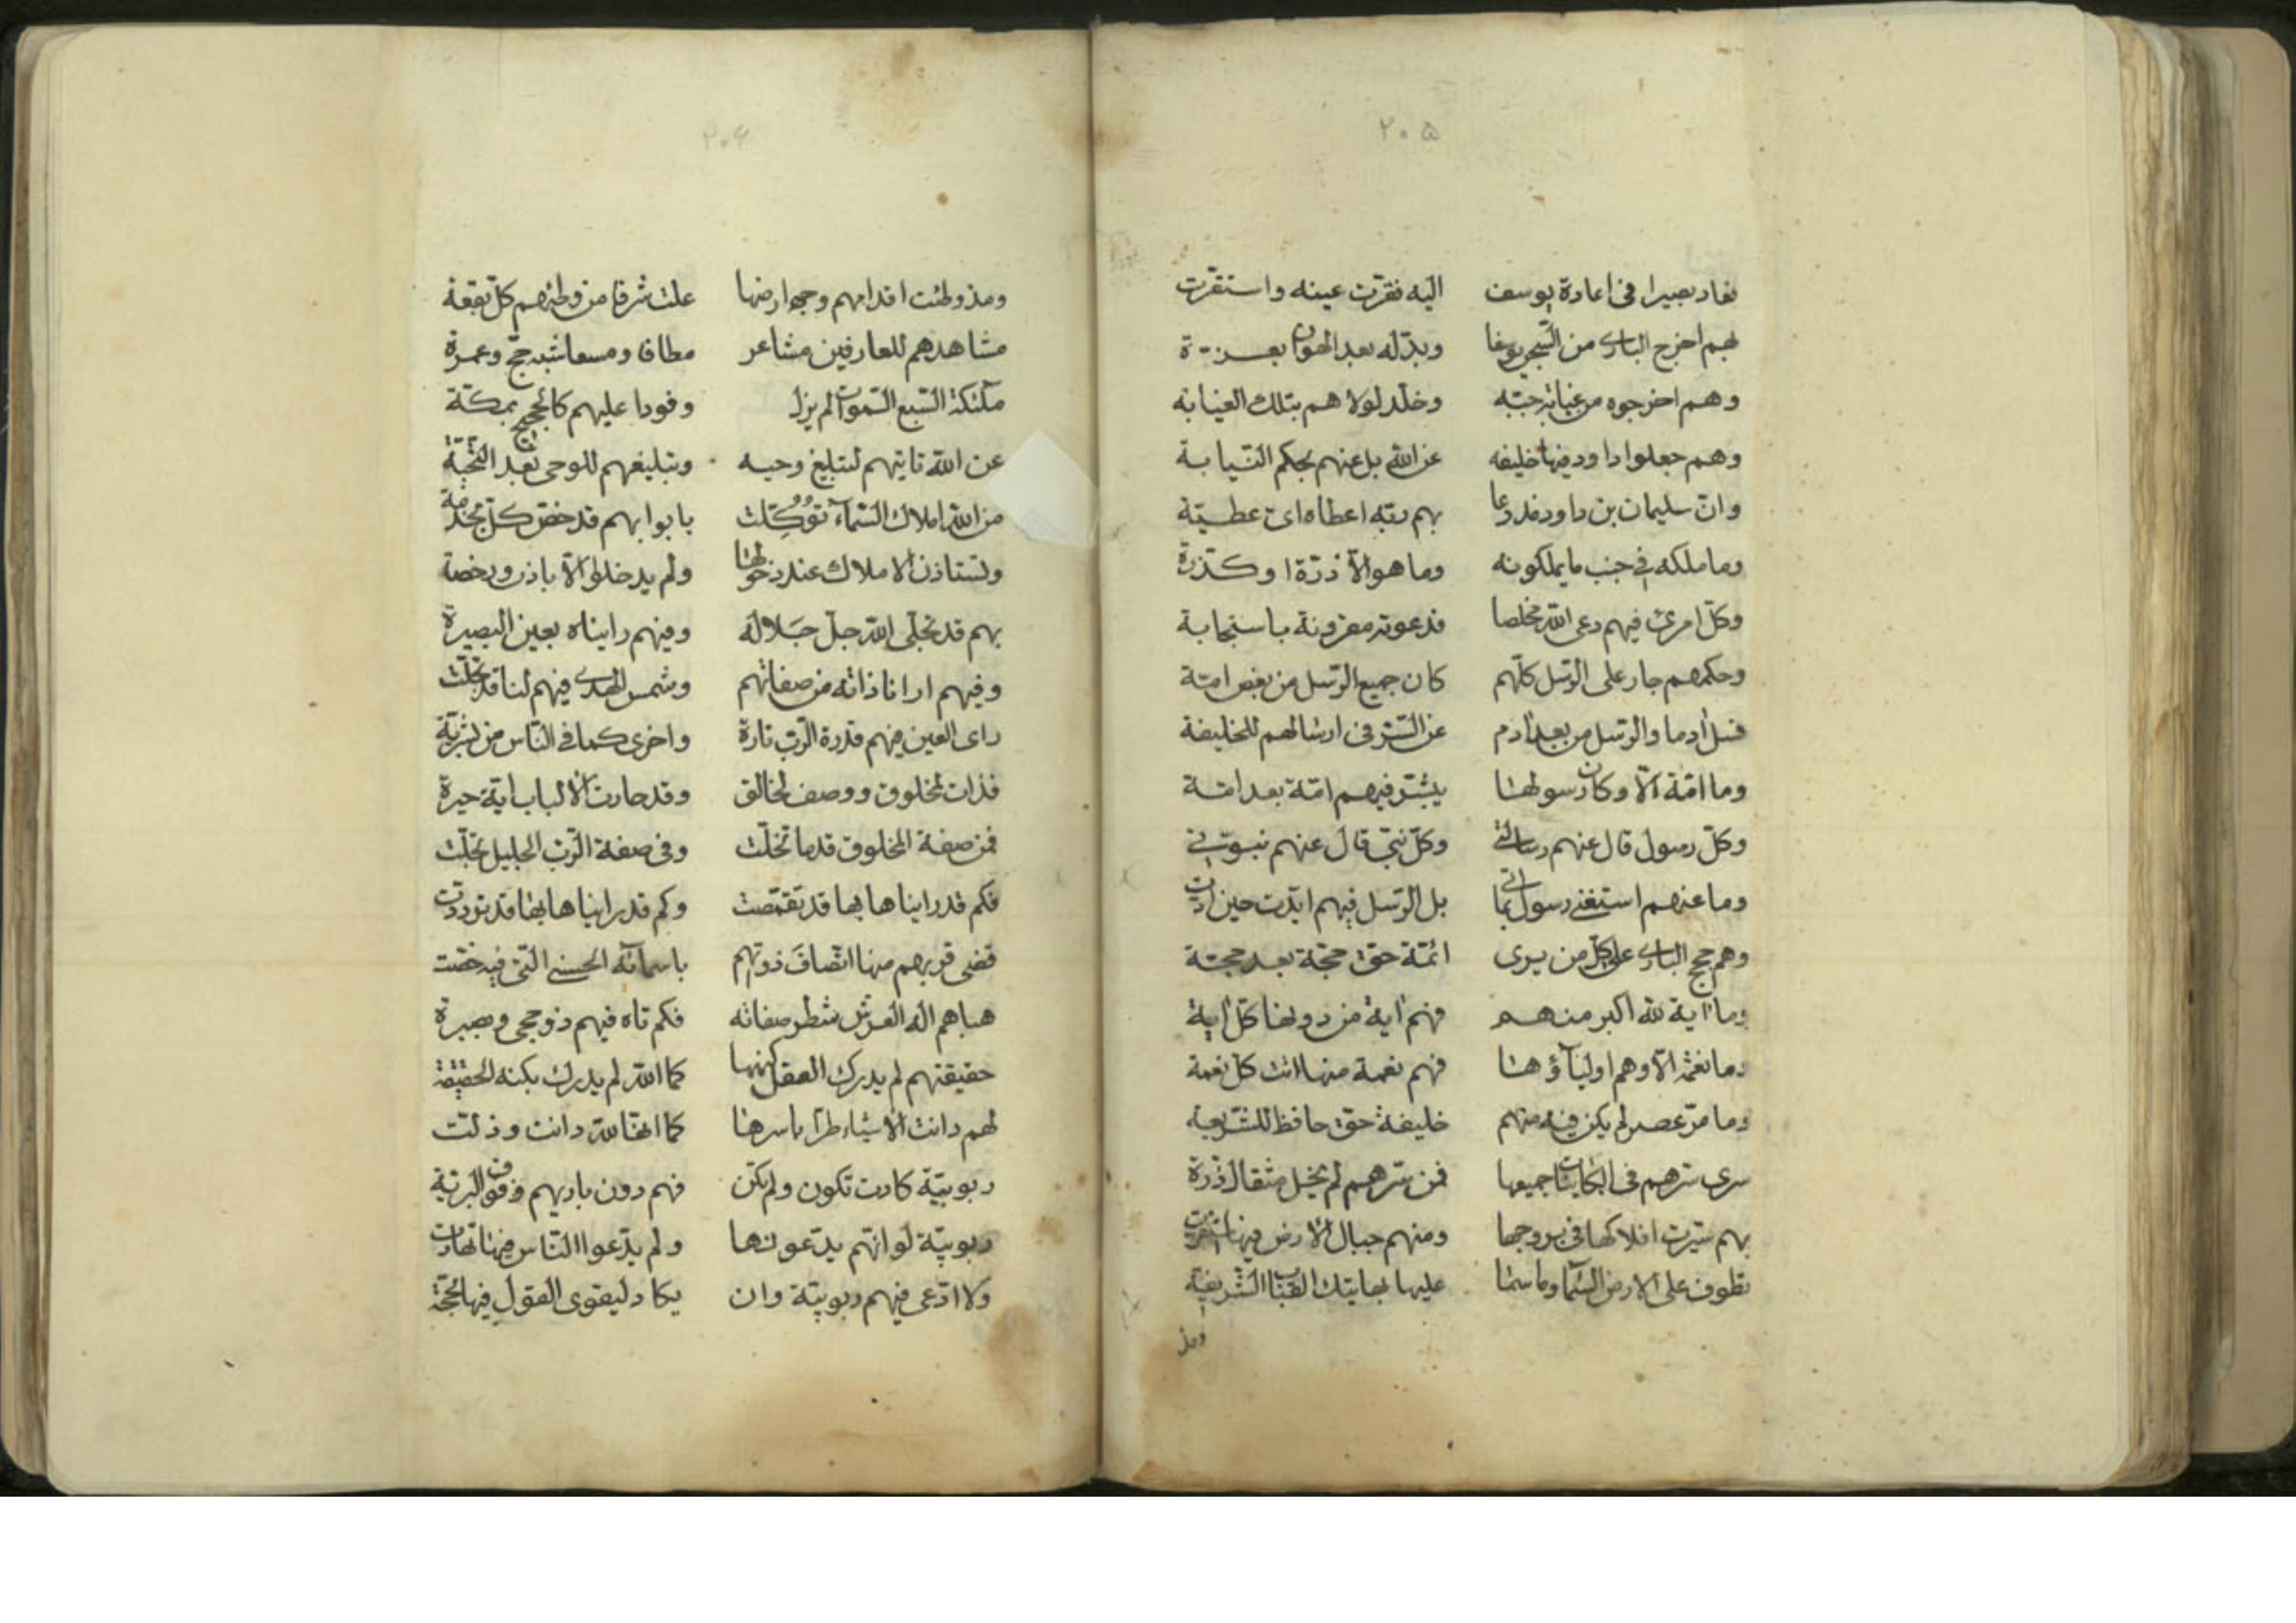 ٢٠٥
فعاد بصيرا فى اعادة يوسف اليه فقرت عينه واستقرت
بهم اخرج البارى من السجن يوسفا وبدّله بعد الهوان بعزة
وهم اخرجوه من غيابة جبّه وخلّد لولا هم بتلك الغيابة
وهم جعلوا داود فيها خليفه عن الله بل عنهم بحكم النيابة
وان سليمان بن داود قد دعا بهم ربّه اعطاه اىّ عطيّة
وما ملكه فى جنب ما يملكونه وما هو الّا ذرّة او كذرّة
وكلّ امرئ فيهم دعى الله مخلصا فدعوته مقرونة باستجابة
وحكمهم جار على الرّسل كلّهم كان جميع الرّسل من بعض امّة
فسل آدما والرّسل من بعد آدم عن السّر فى ارسالهم للخليفة
وما امّة الّا وكان رسولها يبشّر فيهم امّة بعد امّة
وكلّ رسول قال عنهم رسالتى وكلّ نبىّ قال عنهم نبوّتى
وما عنهم استغنى رسول اتى بما بل الرّسل فيهم ايّدت حين ادّت
وهم حجج البارى على كلّ من يرى ائمّة حقّ حجّة بعد حجّة
وما آية لله اكبر منهم فهم آية من دونها كلّ آية
وما نعمة الّا وهم اولياؤها فهم نعمة منها اتت كلّ نعمة
وما مرّ عصر لم يكن فيه منهم خليفة حقّ حافظ للشّريعة
سرى سرّهم فى الكاينات جميعها فمن سرّهم لم يخل مثقال ذرّة
بهم سيّرت افلاكها فى بروجها ومنهم جبال الارض فيها استقرّت
تطوف على الارض السّما وما سمّا عليها بهاتيك القباب الشّريفة
ومذ
٢٠٦
ومذ وطئت اقدامهم وجه ارضها علت شرفا من وطئهم كلّ بقعة
مشاهدهم للعارفين مشاعر مطافا ومسعا شبه حجّ وعمرة
ملٓئكة السّبع السّموات لم يزل وفودا عليهم كالحجيج بمكّة
عن الله تاتيهم لتبليغ وحيه وتبليغهم للوحى بعد التّحيّة
من الله املاك السّمآء تُوُكِّلت بابوابهم قد خصّ كلّ بخدمة
وتستاذن الاملاك عند دخولها ولم يدخلوا الّا باذن ورخصة
بهم قد تجلّى الله جلّ جَلاله وفيهم رايناه بعين البصيرة
وفيهم ارانا ذاته من صفاتهم وشمس الهدى فيهم لنا قد تجلّت
راى العين منهم قدرة الرّب تارة واخرى كما فى النّاس من بشريّة
فذات لمخلوق ووصف لخالق وقد حارت الالباب ايّة حيرة
فمن صفة المخلوق قدما تخلّت وفى صفة الرّب الجليل تحلّت
فكم قد رايناها بها قد تقمّصت وكم قد رايناها بها قد تردّدت
قضى قربهم منها اتّصافَ ذوتهم باسمآئه الحسنى الّتى فيه خصّت
حباهم اله العرش شطر صفاته فكم تاه فيهم ذو حجى وبصيرة
حقيقتهم لم يدرك العقل كنهها كما الله لم يدرك بكنه الحقيقة
لهم دانت الاشياء طرّا باسرها كما انّها لله دانت وذلّت
ربوبيّة كادت تكون ولم تكن فهم دون باريهم وفوق البريّة
ربوبيّة لو انّهم يدّعونها ولم يدّعوا النّاس منها تهادت
ولا ادّعى فيهم ربوبيّة وان يكاد ليقوى القول فيها بحجّة